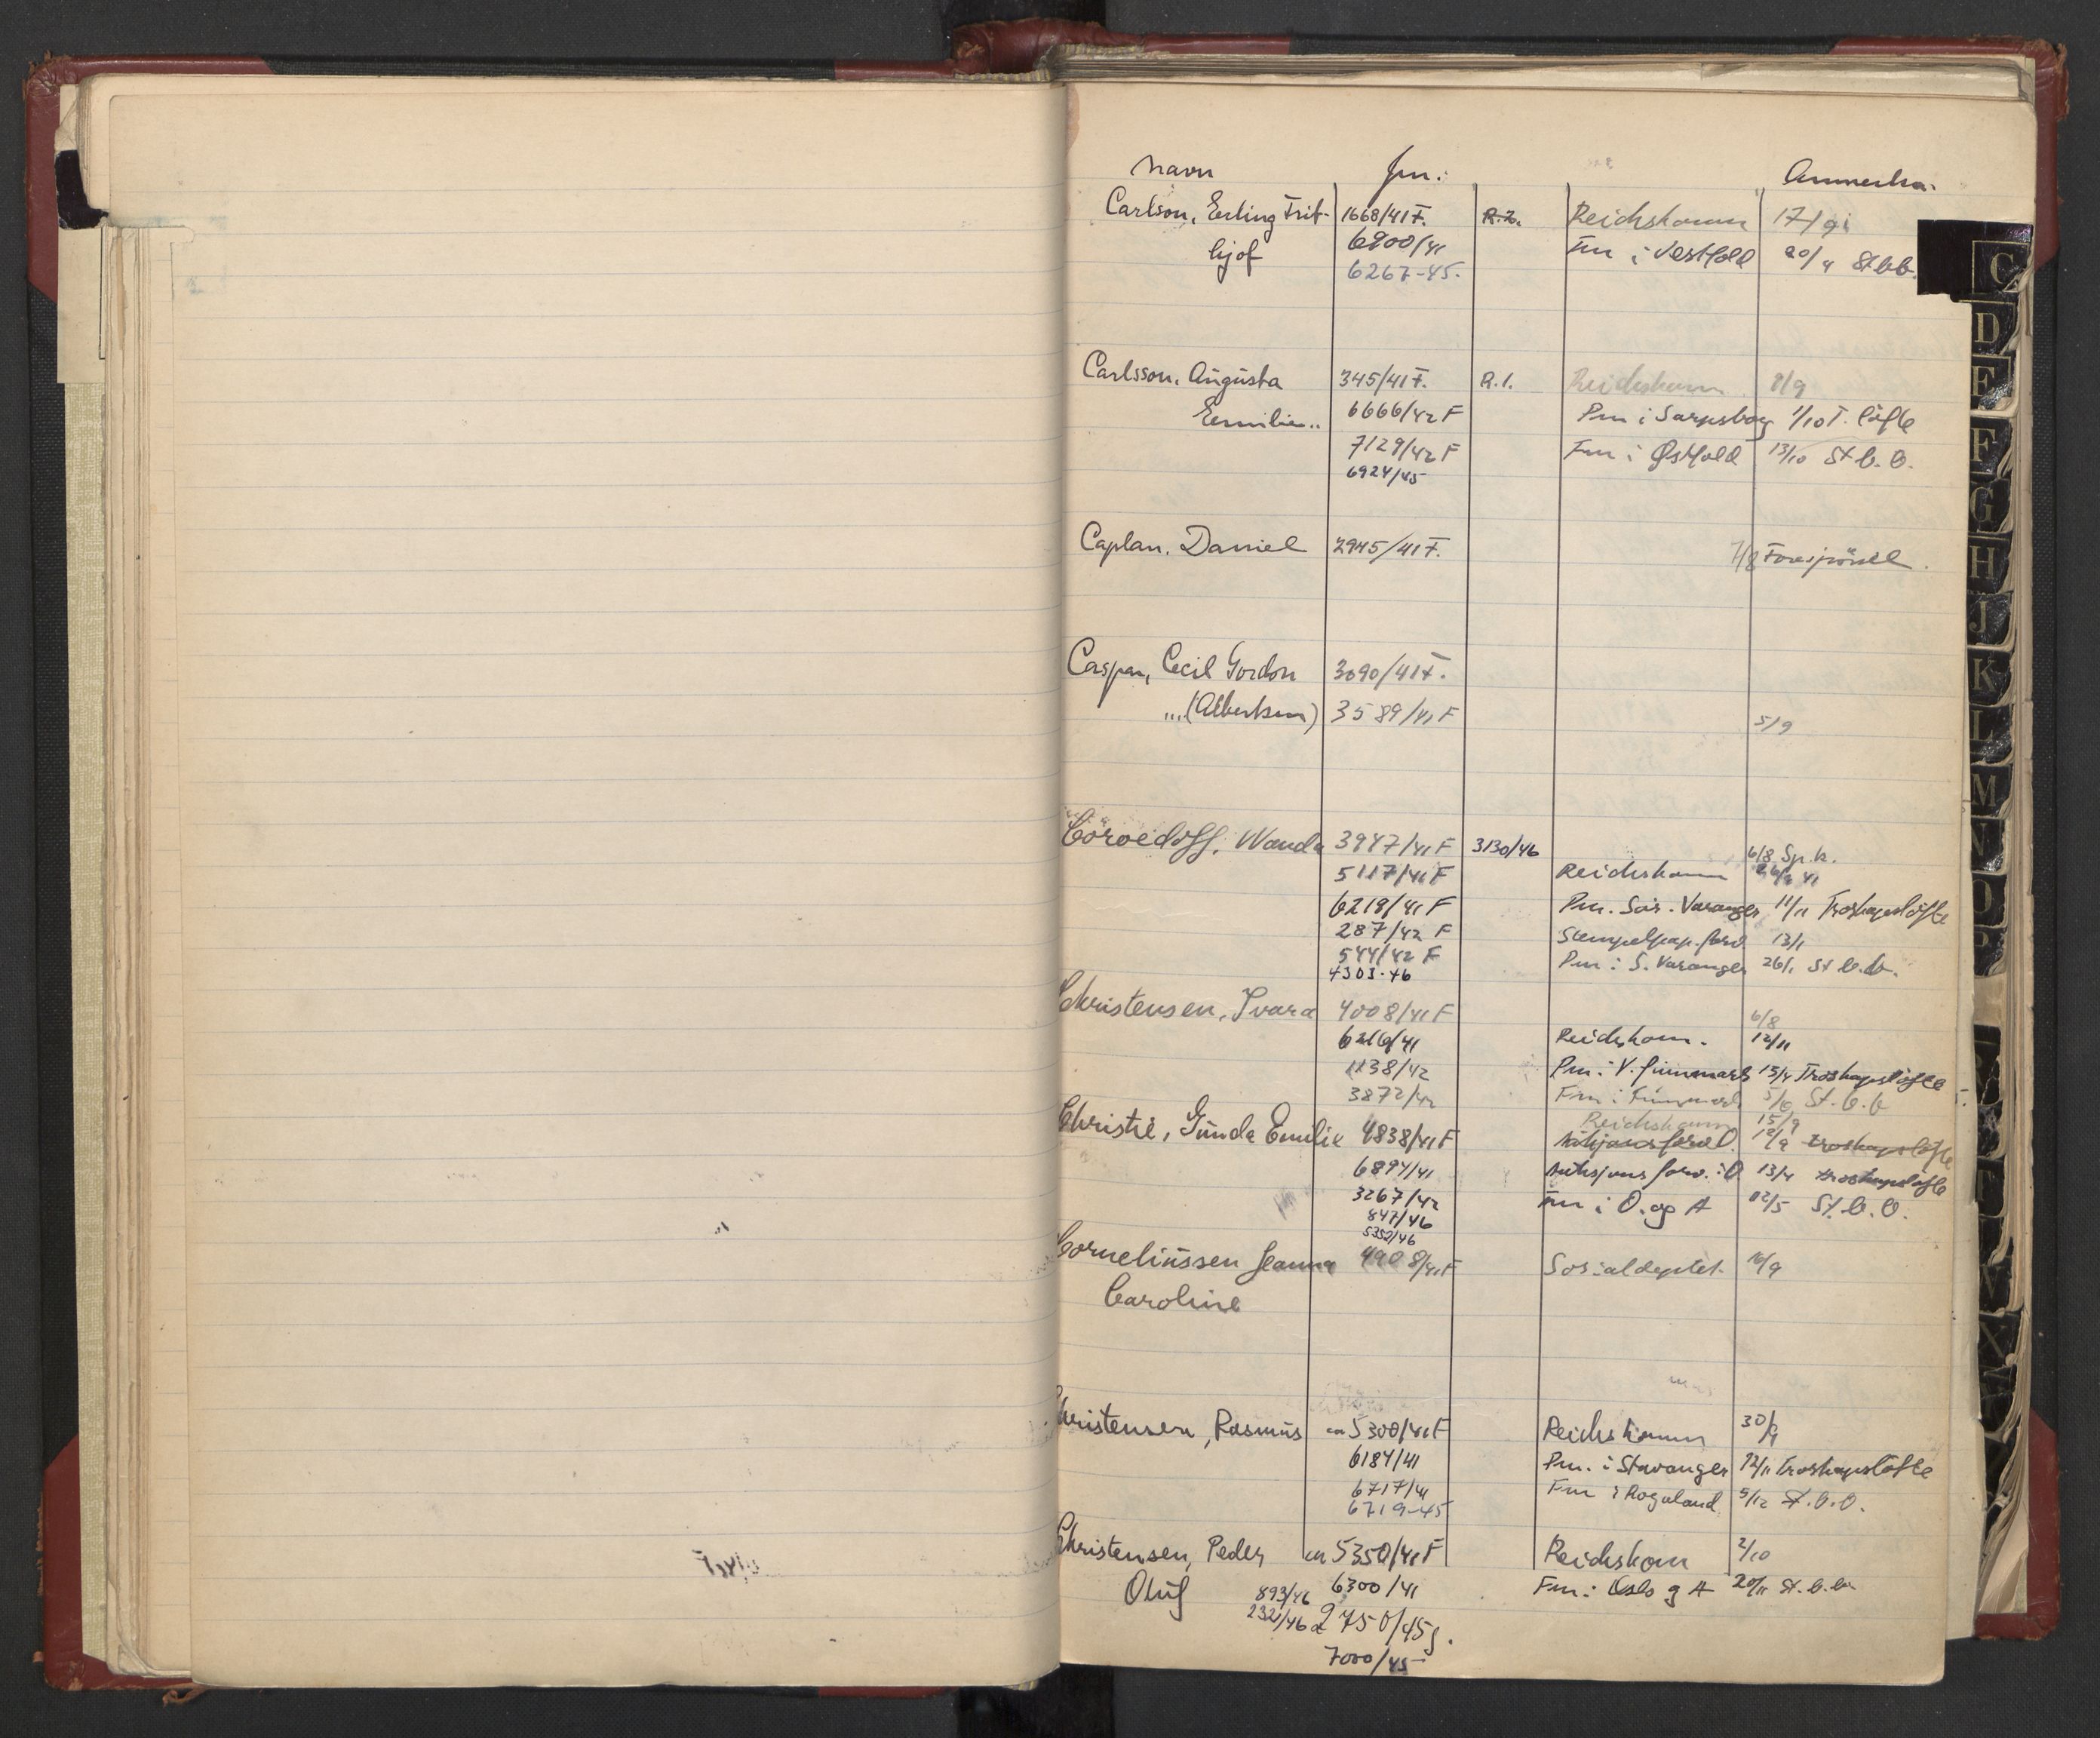 Navn Jnr: Anmerkn.
Carlson, Erling Frit- 1668/41 F. R.I. Reichskomm 17/9
hjof 6900/41 Fm i Vestfold 20/4 St.b.b.
6267-45.
Carlsson, Augusta 345/41 F. R.I. Reichskomm 9/9
Emilie.. 6666/42 F Pm i Sarpsborg 1/10 T. löfte
7129/42 F Fm i Østfold 13/10 St. b. b.
6924/45
Caplan, Daniel 2945/41 F. 7/8 Forespörsel.
Caspar, Cecil Gordon 3090/41 F.
....(Albertsen) 3589/41 F 5/9
Coroedoff, Wanda 3947/41 F 3130/46 6/8 Sp.k.
5117/41 F Reichskomm 26/9 41
6218/41 F Pm. Sör. Varanger 11/11 Troskapslöfte
287/42 F Stempelpap.forv 13/1
544/42 F Pm i S. Varanger 26/1 St b.b.
4303-46
Christensen, Ivara 4008/41 F 6/8
6216/41 Reichskom. 12/11
1138/42 Pm. i V. Finnmark 15/4 Troskapslöfte
3872/42 Fm i Finnmark 5/6 St. b. b
Reichskomm 15/9
Christie, Gunda Emilie 4838/41 F 12/9 troskapslöfte
6894/41 Auksjons forv. i O. 13/4 troskapslöfte
3267/42 Fm i O. og A 12/5 St. b. b.
847/46
5352/46
Corneliussen Jeanna 4908/41 F Sosialdeptet. 16/9
Caroline
Christensen, Rasmus ca 5300/41 F Reichskomm 30/9
6184/41 Pm. i Stavanger 12/11 Troskapslöfte
6717/41 Fm i Rogaland 5/12 St. b. b.
6719-45
Christensen, Peder ca 5350/41 F Reichskom 2/10
Oluf 893/46 6300/41 Fm i Oslo g A 20/11 St. b. b.
2321/46 2750/45 J.
7000/45
C
D
E
F
G
H
J
K
L
M
N
O
P